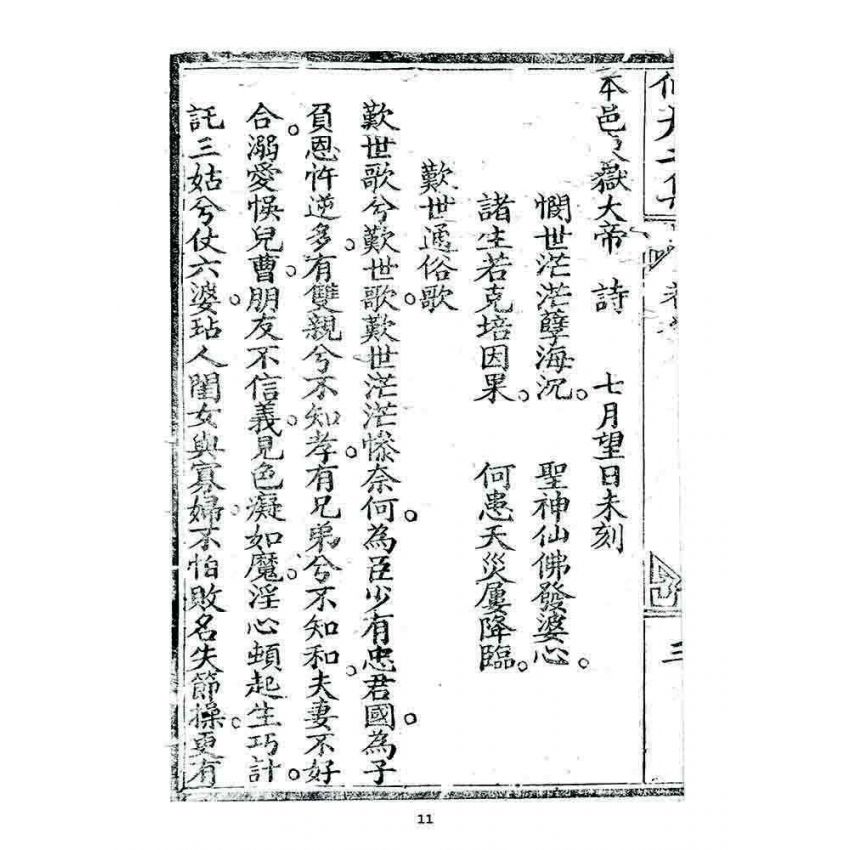 三
本邑 嶽大帝 詩 七月望日未刻
憫世茫茫孽海沉。 聖神仙佛發婆心。
諸生若克培因果。 何患天災屢降臨。
歎世通俗歌
歎世歌兮歎世歌。歎世茫茫慘奈何。為臣少有忠君國。為子
負恩忤逆多。有雙親兮不知孝。有兄弟兮不知和。夫妻不好
合。溺愛悞兒曹。朋友不信義。見色癡如魔。淫心頓起生巧計。
託三姑兮仗六婆。玷人閨女與寡婦。不怕敗名失節操。更有
11